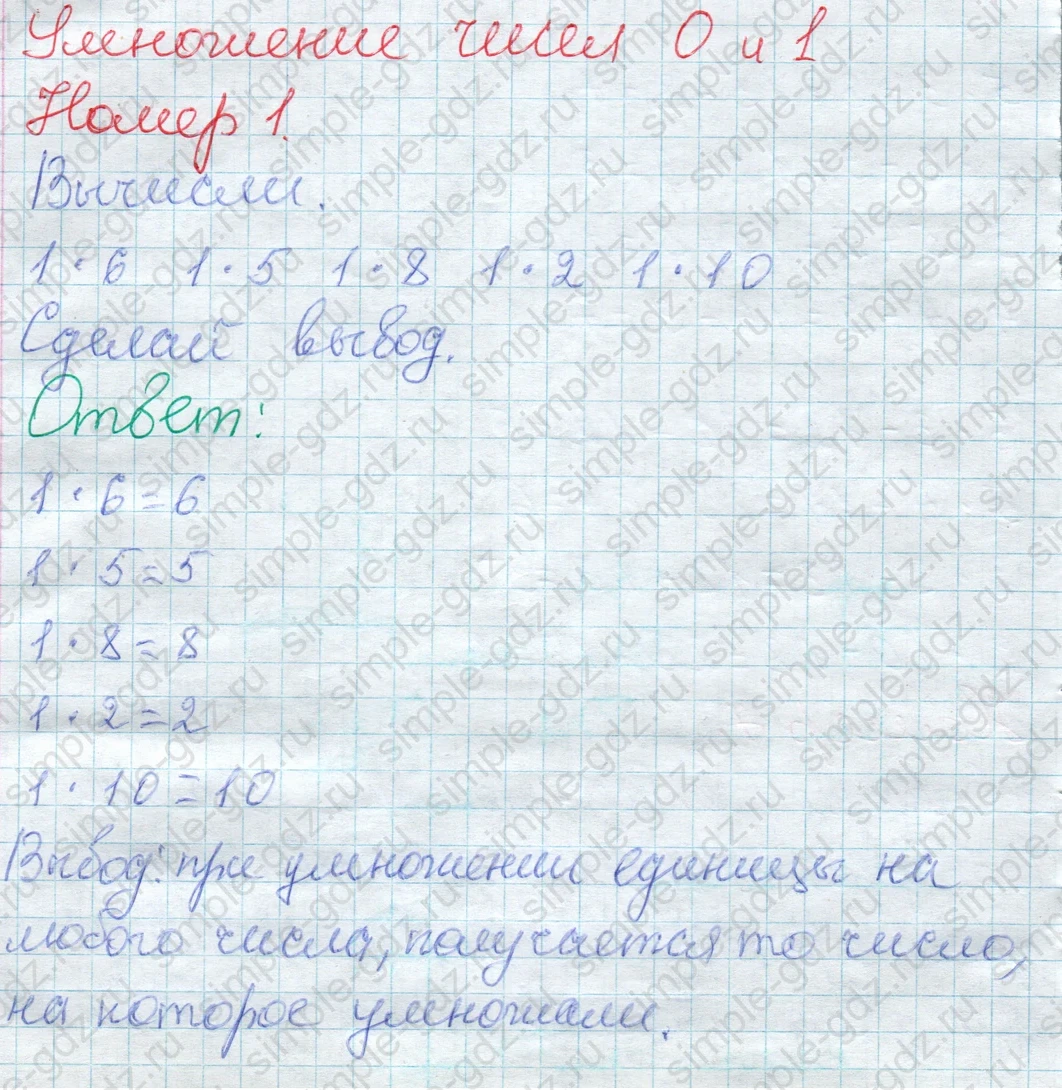 Умножение чисел 0 и 1
Номер 1.
Вычисли.
1·6 1·5 1·8 1·2 1·10
Сделай вывод.
Ответ:
1·6=6
1·5=5
1·8=8
1·2=2
1·10=10
Вывод: при умножении единицы на
любого числа, получается то число,
на которое умножали.
simple-gdz.ru